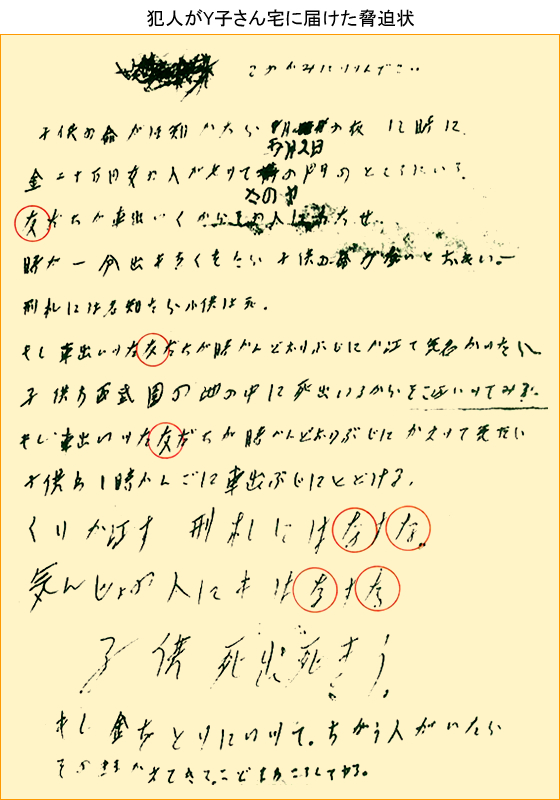 犯人がY子さん宅に届けた脅迫状
このかみにツツんでこい
子供の命がほ知かたら の夜12時に、
五月2日
金二十万円女の人がもッて の門のところにいろ。
さのヤ
友だちが車出いくからその人にわたせ。
時が一分出もをくれたら子供の命がないとおもい。—
刑札には名知たら小供は死。
もし車出いッた友だちが時かんどおりぶじにか江て気名かッたら
子供わ西武園の池の中に死出いるからそこ江いッてみろ。
もし車出いッた友だちが時かんどおりぶじにかえッて気たら
子供わ1時かんごに車出ぶじにとどける、
くりか江す 刑札にはなすな。
気んじょの人にもはなすな
子供死出死まう。
もし金をとりにいッて。ちがう人がいたら
そのままかえてきて。こどもわころしてヤる。